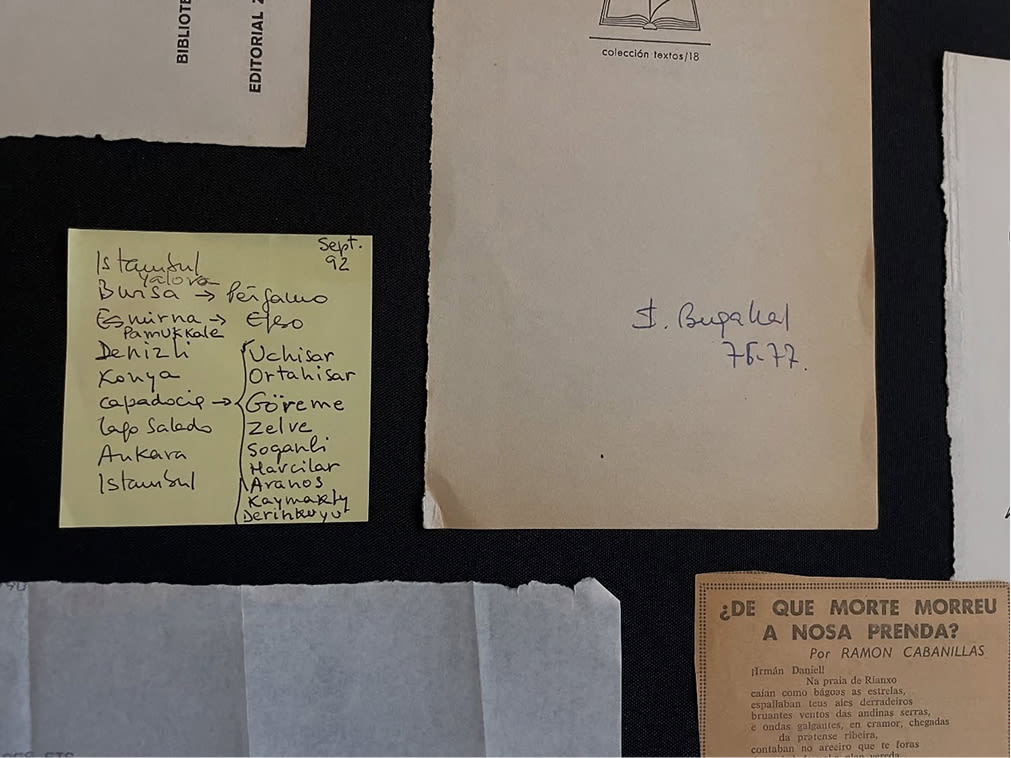 BIBLIOTE
EDITORIAL
colección textos/18
Sept.
92
Istambul
Yalova
Bursa → Pérgamo
Esmirna → Efeso
Pamukkale
Denizli
Konya
Capadocia →
Lago Salado
Ankara
Istambul
Uchisar
Ortahisar
Göreme
Zelve
Soganli
Havcilar
Avanos
Kaymakly
Derinkuyu
76-77.
¿DE QUE MORTE MORREU
A NOSA PRENDA?
Por RAMON CABANILLAS
¡Irmán Daniel!
Na praia de Rianxo
caían como bágoas as estrelas,
espallaban teus aies derradeiros
bruantes ventos das andinas serras,
e ondas galgantes, en cramor, chegadas
da pratense ribeira,
contaban no areeiro que te foras